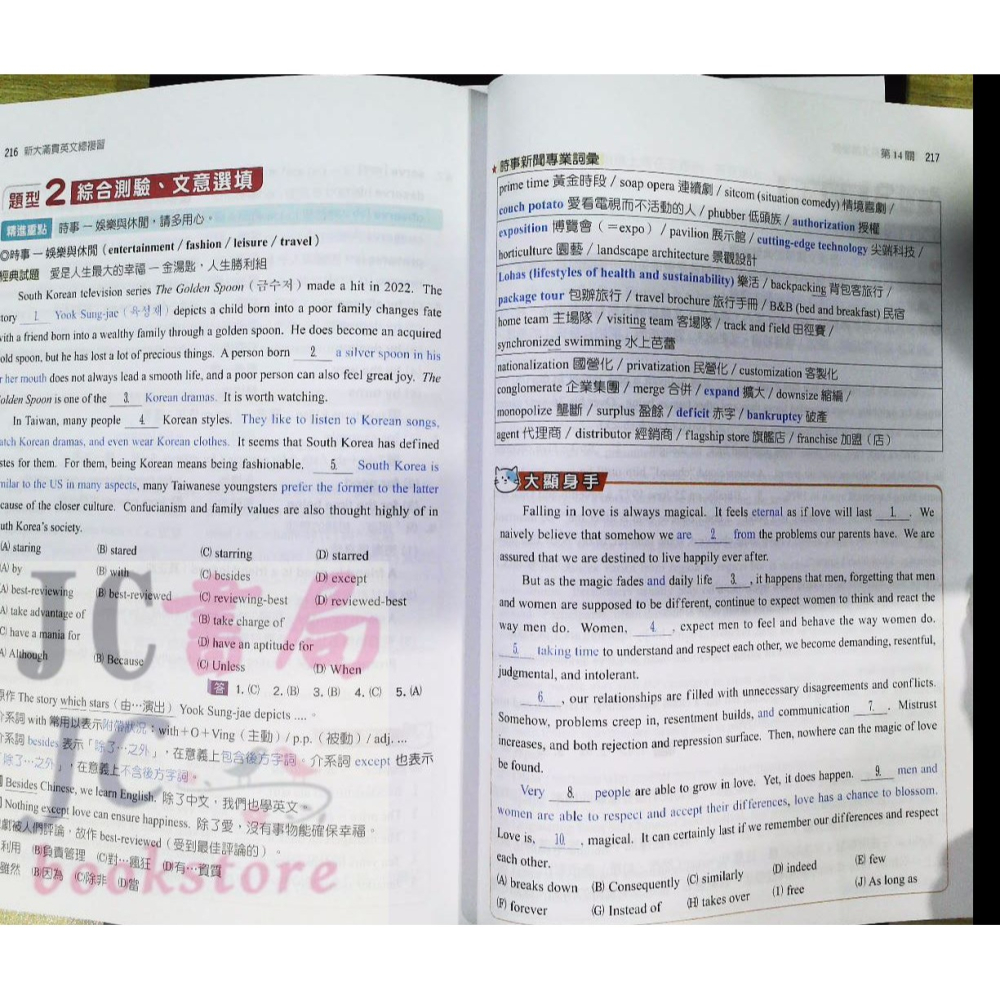 216 新大滿貫英文總複習
題型2 綜合測驗、文意選填
精進重點 時事—娛樂與休閒,請多用心。
◎時事—娛樂與休閒(entertainment / fashion / leisure / travel)
經典試題 愛是人生最大的幸福—金湯匙,人生勝利組
South Korean television series The Golden Spoon(금수저)made a hit in 2022. The
tory 1. Yook Sung-jae(육성재)depicts a child born into a poor family changes fate
with a friend born into a wealthy family through a golden spoon. He does become an acquired
old spoon, but he has lost a lot of precious things. A person born 2. a silver spoon in his
r her mouth does not always lead a smooth life, and a poor person can also feel great joy. The
olden Spoon is one of the 3. Korean dramas. It is worth watching.
In Taiwan, many people 4. Korean styles. They like to listen to Korean songs,
atch Korean dramas, and even wear Korean clothes. It seems that South Korea has defined
stes for them. For them, being Korean means being fashionable. 5. South Korea is
milar to the US in many aspects, many Taiwanese youngsters prefer the former to the latter
cause of the closer culture. Confucianism and family values are also thought highly of in
uth Korea's society.
(A) staring (B) stared (C) starring (D) starred
(A) by (B) with (C) besides (D) except
(A) best-reviewing (B) best-reviewed (C) reviewing-best (D) reviewed-best
A) take advantage of (B) take charge of
C) have a mania for (D) have an aptitude for
A) Although (B) Because (C) Unless (D) When
答 1. (C) 2. (B) 3. (B) 4. (C) 5. (A)
原作 The story which stars(由…演出)Yook Sung-jae depicts ....。
介系詞 with 常用以表示附帶狀況:with+O+Ving(主動)/ p.p.(被動)/ adj. ...
介系詞 besides 表示「除了…之外」,在意義上包含後方字詞。介系詞 except 也表示
「除了…之外」,在意義上不含後方字詞。
Besides Chinese, we learn English. 除了中文,我們也學英文。
Nothing except love can ensure happiness. 除了愛,沒有事物能確保幸福。
劇被人們評論,故作 best-reviewed(受到最佳評論的)。
利用 (B)負責管理 (C)對…瘋狂 (D)有…資質
雖然 (B)因為 (C)除非 (D)當
JC書局
JC
bookstore
第14關 217
★時事新聞專業詞彙
prime time 黃金時段 / soap opera 連續劇 / sitcom (situation comedy) 情境喜劇 /
couch potato 愛看電視而不活動的人 / phubber 低頭族 / authorization 授權
exposition 博覽會(=expo)/ pavilion 展示館 / cutting-edge technology 尖端科技 /
horticulture 園藝 / landscape architecture 景觀設計
Lohas (lifestyles of health and sustainability) 樂活 / backpacking 背包客旅行 /
package tour 包辦旅行 / travel brochure 旅行手冊 / B&B (bed and breakfast) 民宿
home team 主場隊 / visiting team 客場隊 / track and field 田徑賽 /
synchronized swimming 水上芭蕾
nationalization 國營化 / privatization 民營化 / customization 客製化
conglomerate 企業集團 / merge 合併 / expand 擴大 / downsize 縮編 /
monopolize 壟斷 / surplus 盈餘 / deficit 赤字 / bankruptcy 破產
agent 代理商 / distributor 經銷商 / flagship store 旗艦店 / franchise 加盟(店)
大顯身手
Falling in love is always magical. It feels eternal as if love will last 1. . We
naively believe that somehow we are 2. from the problems our parents have. We are
assured that we are destined to live happily ever after.
But as the magic fades and daily life 3. , it happens that men, forgetting that men
and women are supposed to be different, continue to expect women to think and react the
way men do. Women, 4. , expect men to feel and behave the way women do.
5. taking time to understand and respect each other, we become demanding, resentful,
judgmental, and intolerant.
6. , our relationships are filled with unnecessary disagreements and conflicts.
Somehow, problems creep in, resentment builds, and communication 7. . Mistrust
increases, and both rejection and repression surface. Then, nowhere can the magic of love
be found.
Very 8. people are able to grow in love. Yet, it does happen. 9. men and
women are able to respect and accept their differences, love has a chance to blossom.
Love is, 10. , magical. It can certainly last if we remember our differences and respect
each other.
(A) breaks down (B) Consequently (C) similarly (D) indeed (E) few
(F) forever (G) Instead of (H) takes over (I) free (J) As long as